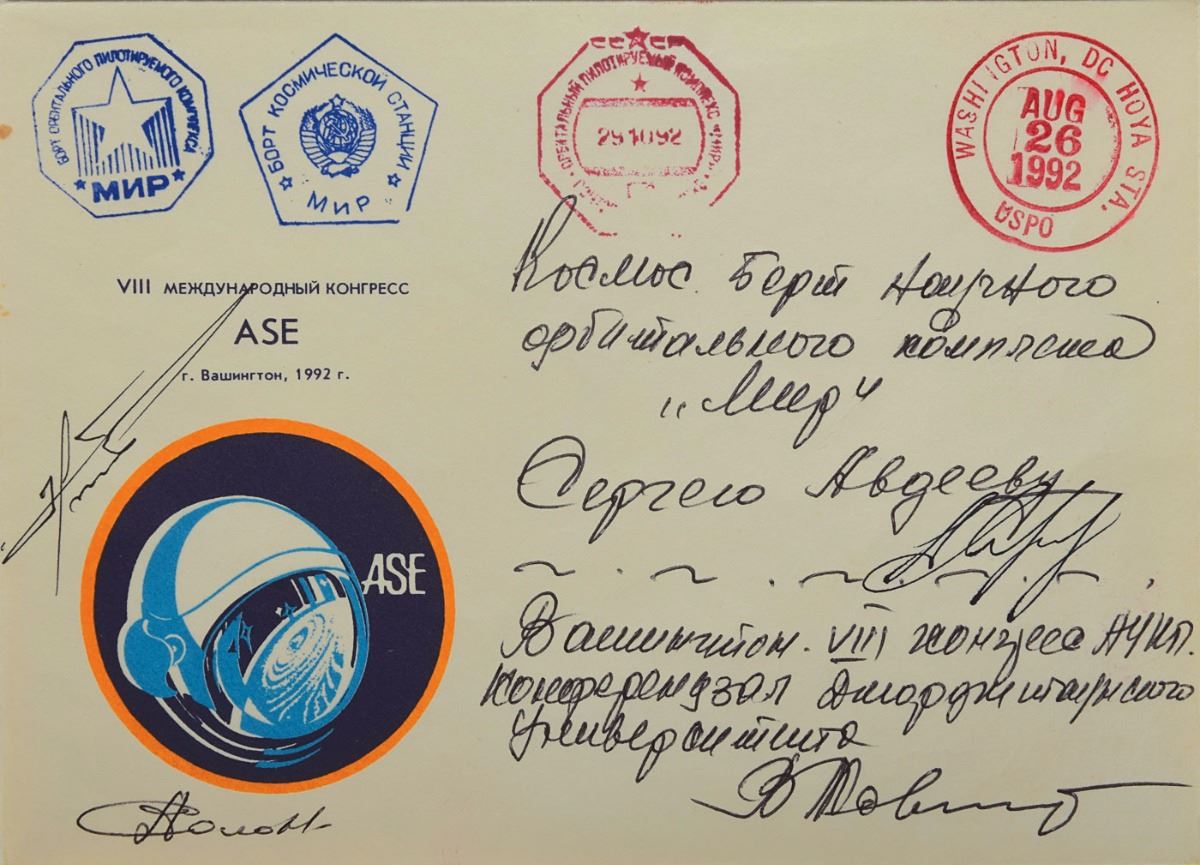 БОРТ ОРБИТАЛЬНОГО ПИЛОТИРУЕМОГО КОМПЛЕКСА
МИР
БОРТ КОСМИЧЕСКОЙ СТАНЦИИ
МИР
СССР
ОРБИТАЛЬНЫЙ ПИЛОТИРУЕМЫЙ КОМПЛЕКС "МИР"
29 10 92
WASHINGTON, DC HOYA STA.
AUG
26
1992
USPO
VIII МЕЖДУНАРОДНЫЙ КОНГРЕСС
ASE
г. Вашингтон, 1992 г.
ASE
Космос. Борт научного
орбитального комплекса
„Мир"
Сергею Авдееву
Вашингтон. VIII конгресс АУКП.
Конферендзал Джорджтаунского
Университета